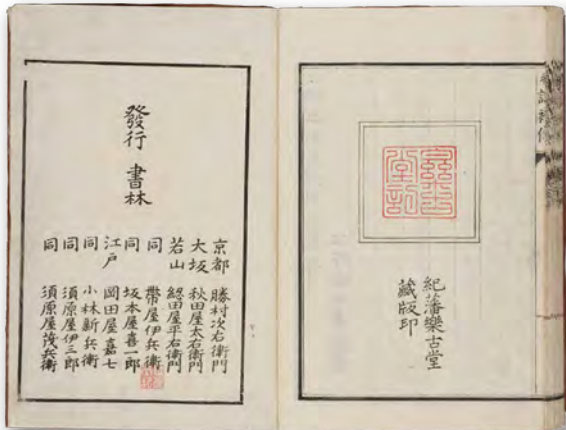 紀藩樂古堂
藏版印
發行 書林
京都 勝村次右衛門
大坂 秋田屋太右衛門
若山 綛田屋平右衛門
同 帶屋伊兵衛
同 坂本屋喜一郎
江戸 岡田屋嘉七
同 小林新兵衛
同 須原屋伊三郎
同 須原屋茂兵衛